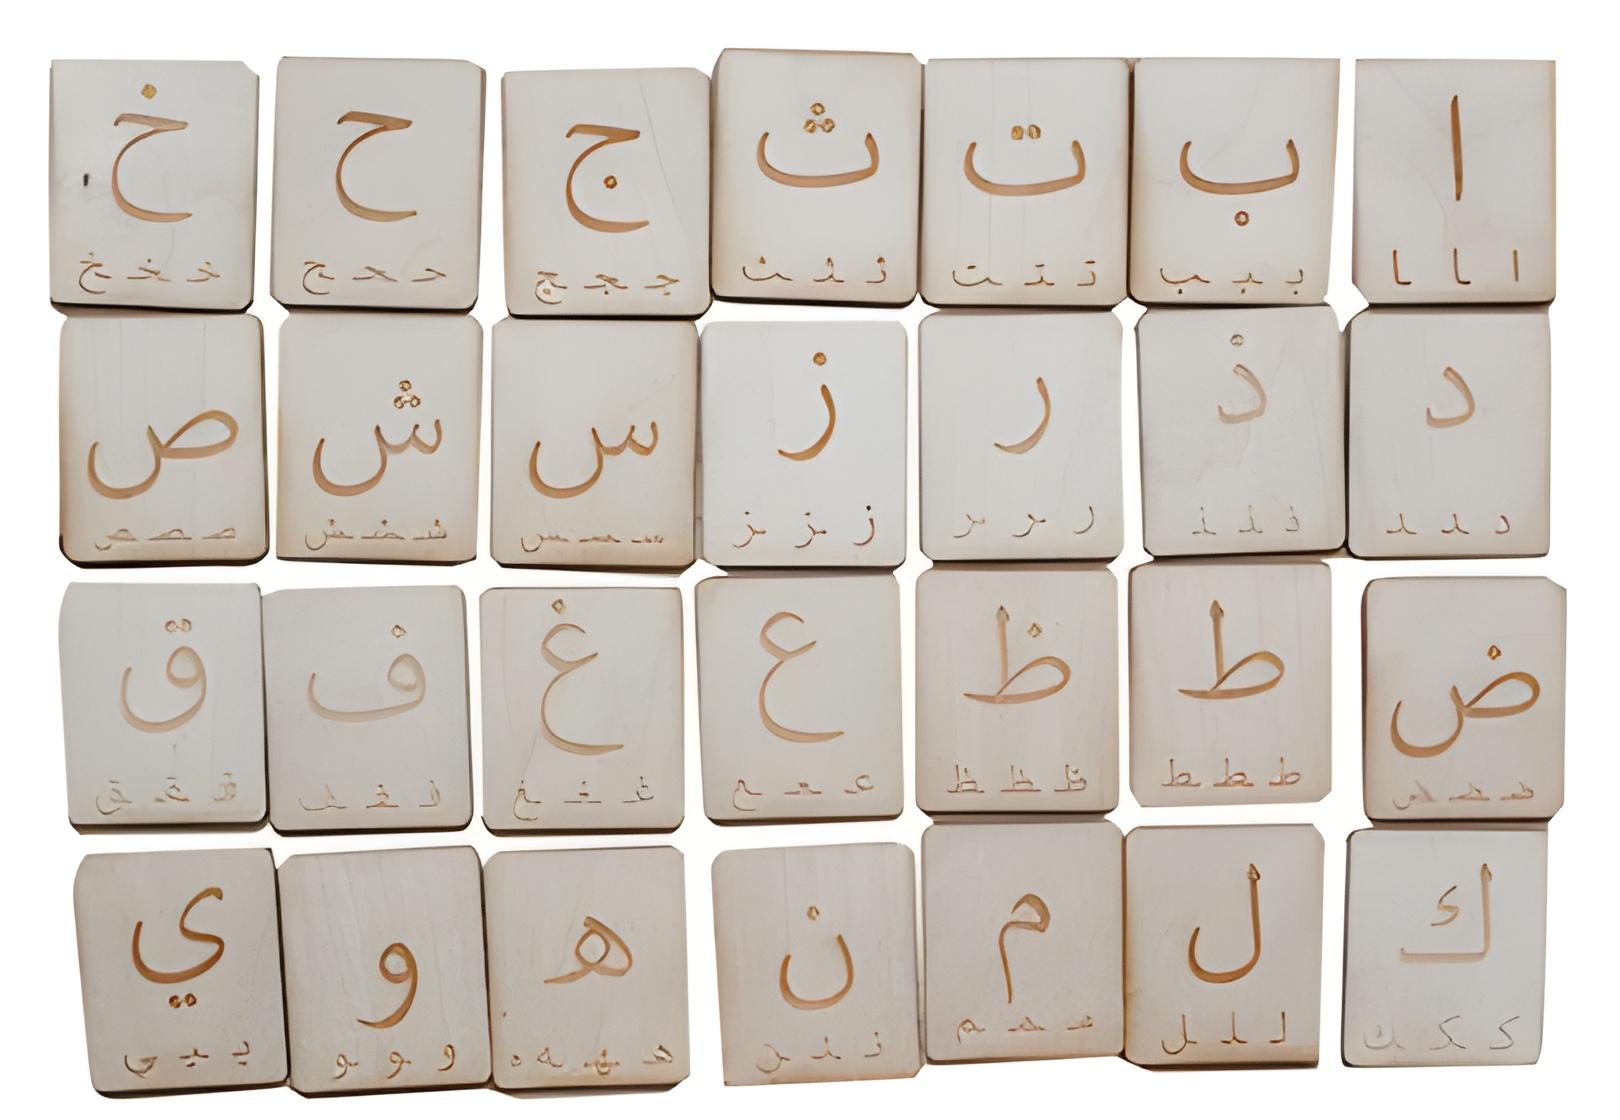 ا ب ت ث ج ح خ
ا ـا ـا بـ ـبـ ـب تـ ـتـ ـت ثـ ـثـ ـث جـ ـجـ ـج حـ ـحـ ـح خـ ـخـ ـخ
د ذ ر ز س ش ص
د ـد ـد ذ ـذ ـذ ر ـر ـر ز ـز ـز سـ ـسـ ـس شـ ـشـ ـش صـ ـصـ ـص
ض ط ظ ع غ ف ق
ضـ ـضـ ـض ط ـطـ ـط ظ ـظـ ـظ عـ ـعـ ـع غـ ـغـ ـغ فـ ـفـ ـف قـ ـقـ ـق
ك ل م ن ه و ي
كـ ـكـ ـك لـ ـلـ ـل مـ ـمـ ـم نـ ـنـ ـن هـ ـهـ ـه و ـو ـو يـ ـيـ ـي